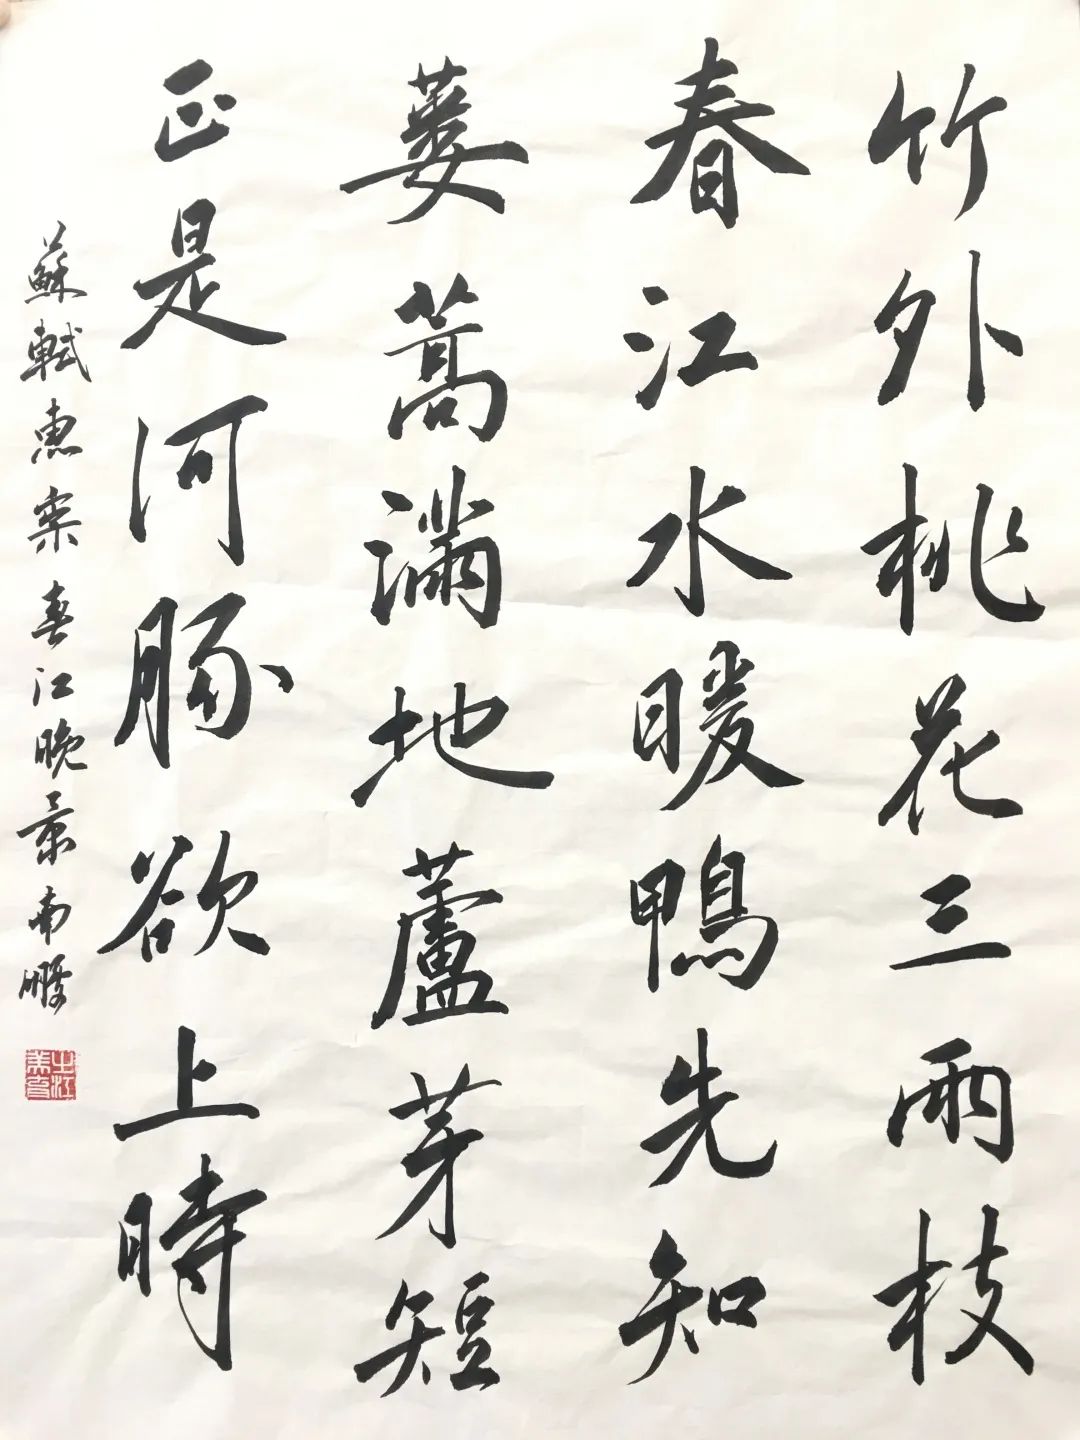 竹外桃花三兩枝
春江水暖鴨先知
蔞蒿滿地蘆芽短
正是河豚欲上時
蘇軾惠崇春江晚景南鵬